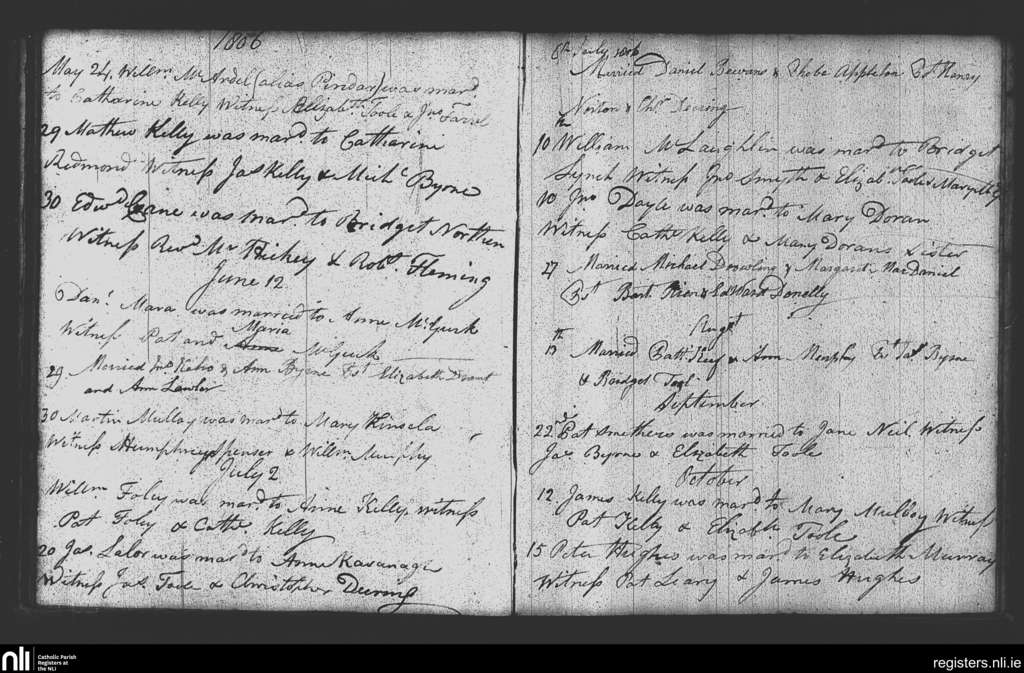 1806
May 24, Willm Mc Ardel (alias Pindar) was mard
to Catharine Kelly Witness Elizabth Toole & Jno Farrel
29 Mathew Kelly was mard to Catharine
Redmond Witness Jas Kelly & Michl Byrne
30 Edwd was mard to Bridget Northen
Witness Revd Mr Hickey & Robt Fleming
June 12
Danl Mara was married to Anne McGurk
Maria
Witness Pat and Anne McGurk
29. Married Jno Keho & Ann Byrne Ts Elizabeth
and Ann Lawlor
30 Martin Mulloy was mard to Mary Kinsela
Witness Humphrey Spenser & Willm Murphy
July 2
Willm Foley was mard to Anne Kelly, witness
Pat Foley & Cathe Kelly
20 Jas Lalor was mard to Anne Kavanagh
Witness Jas Toole & Christopher Deering
8th July 1806
Married Daniel Bewans & Phebe Appleton Ts Henry
Norton & Chr Deering
10th William McLaughlin was mard to Bridget
Lynch Witness Jno Smyth & Elizabth Toole
10 Jno Doyle was mard to Mary Doran
Witness Cathe Kelly & Mary Dorans Sister
27 Married Michael Dowling & Margaret MacDaniel
Ts Bart & Edward Donelly
Augst
Married Patt & Ann Murphy Ts Jas Byrne
& Bridget Tool
September
22d Pat Smithers was married to Jane Neil Witness
Jas Byrne & Elizabeth Toole
October
12 James Kelly was mard to Mary Muldoy Witness
Pat Kelly & Elizabth Toole
15 Peter Hughes was mard to Elizabeth Murray
Witness Pat Leary & James Hughes
nli Catholic Parish
Registers at
the NLI
registers.nli.ie